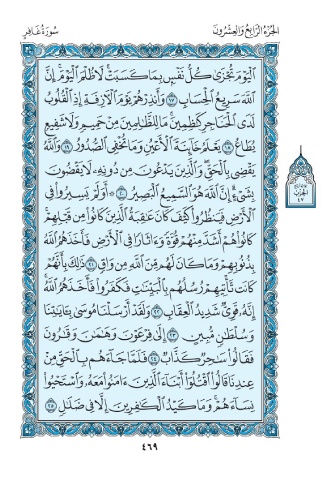 الجُزْءُ الرَّابِعُ وَالعِشْرُونَ
سُورَةُ غَافِرٍ
ٱلۡيَوۡمَ تُجۡزَىٰ كُلُّ نَفۡسِۭ بِمَا كَسَبَتۡۚ لَا ظُلۡمَ ٱلۡيَوۡمَۚ إِنَّ
ٱللَّهَ سَرِيعُ ٱلۡحِسَابِ ١٧ وَأَنذِرۡهُمۡ يَوۡمَ ٱلۡأٓزِفَةِ إِذِ ٱلۡقُلُوبُ
لَدَى ٱلۡحَنَاجِرِ كَٰظِمِينَۚ مَا لِلظَّٰلِمِينَ مِنۡ حَمِيمٖ وَلَا شَفِيعٖ
يُطَاعُ ١٨ يَعۡلَمُ خَآئِنَةَ ٱلۡأَعۡيُنِ وَمَا تُخۡفِي ٱلصُّدُورُ ١٩ وَٱللَّهُ
يَقۡضِي بِٱلۡحَقِّۖ وَٱلَّذِينَ يَدۡعُونَ مِن دُونِهِۦ لَا يَقۡضُونَ
بِشَيۡءٍۗ إِنَّ ٱللَّهَ هُوَ ٱلسَّمِيعُ ٱلۡبَصِيرُ ٢٠ ۞ أَوَلَمۡ يَسِيرُواْ فِي
ٱلۡأَرۡضِ فَيَنظُرُواْ كَيۡفَ كَانَ عَٰقِبَةُ ٱلَّذِينَ كَانُواْ مِن قَبۡلِهِمۡۚ
كَانُواْ هُمۡ أَشَدَّ مِنۡهُمۡ قُوَّةٗ وَءَاثَارٗا فِي ٱلۡأَرۡضِ فَأَخَذَهُمُ ٱللَّهُ
بِذُنُوبِهِمۡ وَمَا كَانَ لَهُم مِّنَ ٱللَّهِ مِن وَاقٖ ٢١ ذَٰلِكَ بِأَنَّهُمۡ
كَانَت تَّأۡتِيهِمۡ رُسُلُهُم بِٱلۡبَيِّنَٰتِ فَكَفَرُواْ فَأَخَذَهُمُ ٱللَّهُۚ
إِنَّهُۥ قَوِيّٞ شَدِيدُ ٱلۡعِقَابِ ٢٢ وَلَقَدۡ أَرۡسَلۡنَا مُوسَىٰ بِـَٔايَٰتِنَا
وَسُلۡطَٰنٖ مُّبِينٍ ٢٣ إِلَىٰ فِرۡعَوۡنَ وَهَٰمَٰنَ وَقَٰرُونَ
فَقَالُواْ سَٰحِرٞ كَذَّابٞ ٢٤ فَلَمَّا جَآءَهُم بِٱلۡحَقِّ مِنۡ
عِندِنَا قَالُواْ ٱقۡتُلُوٓاْ أَبۡنَآءَ ٱلَّذِينَ ءَامَنُواْ مَعَهُۥ وَٱسۡتَحۡيُواْ
نِسَآءَهُمۡۚ وَمَا كَيۡدُ ٱلۡكَٰفِرِينَ إِلَّا فِي ضَلَٰلٖ ٢٥
الحزب
٤٧
٤٦٩